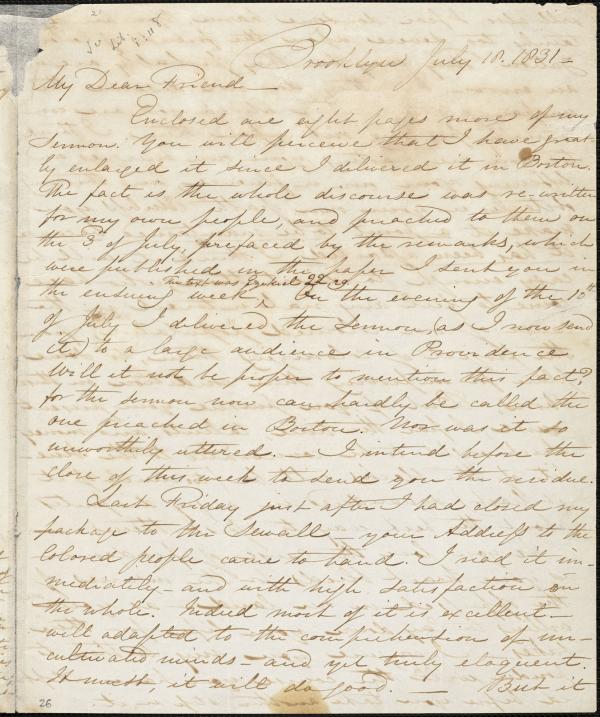 Brooklyn July 18. 1831 –
My Dear Friend –
Enclosed are eight pages more of my
Sermon. You will perceive that I have great-
ly enlarged it since I delivered it in Boston.
The fact is the whole discourse was re-written
for my own people, and preached to them on
the 3d of July, prefaced by the remarks, which
were published in the paper I sent you in
the text was Ezekiel 22 29.
the ensuing week, On the evening of the 10th
of July I delivered the Sermon, (as I now send
it) to a large audience in Providence
Will it not be proper to mention this fact?
for the sermon now can hardly be called the
one preached in Boston. Nor was it so
unworthily uttered. – I intend before the
close of this week to send you the residue.
Last Friday just after I had closed my
package to Mr Sewall – your Address to the
Colored people came to hand. I read it im-
mediately – and with high satisfaction on
the whole. Indeed most of it is excellent –
well adapted to the comprehension of un-
cultivated minds – and yet truly eloquent.
It must, it will do good. – But it
26